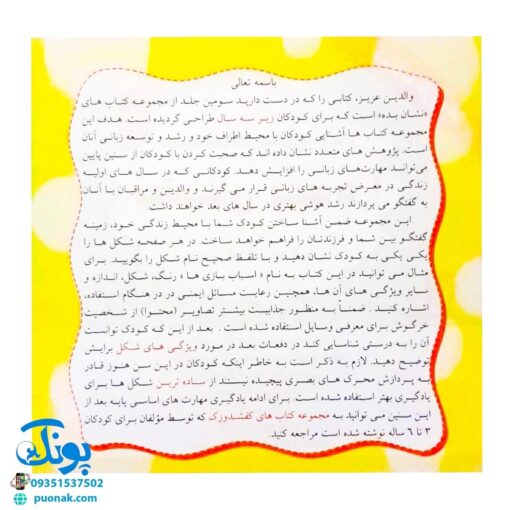 باسمه تعالی
والدین عزیز، کتابی را که در دست دارید سومین جلد از مجموعه کتاب های
«نشان بده» است که برای کودکان زیر سه سال طراحی گردیده است. هدف این
مجموعه کتاب ها آشنایی کودکان با محیط اطراف خود و رشد و توسعه زبانی آنان
است. پژوهش های متعدد نشان داده اند که صحبت کردن با کودکان از سنین پایین
می‌تواند مهارت‌های زبانی را افزایش دهد. کودکانی که در سال های اولیه
زندگی در معرض تجربه های زبانی قرار می گیرند و والدین و مراقبان با آنان
به گفتگو می پردازند رشد هوشی بهتری در سال های بعد خواهند داشت.
این مجموعه ضمن آشنا ساختن کودک شما با محیط زندگی خود، زمینه
گفتگو بین شما و فرزندتان را فراهم خواهد ساخت. در هر صفحه شکل ها را
یکی یکی به کودک نشان دهید و با تلفظ صحیح نام شکل را بگویید. برای
مثال می توانید در این کتاب به نام « اسباب بازی ها » رنگ، شکل، اندازه و
سایر ویژگی های آن ها، همچنین رعایت مسائل ایمنی در در هنگام استفاده،
اشاره کنید. ضمناً به منظور جذابیت بیشتر تصاویر (محتوا) از شخصیت
خرگوش برای معرفی وسایل استفاده شده است . بعد از این که کودک توانست
آن را به درستی شناسایی کند در دفعات بعد در مورد ویژگی های شکل برایش
توضیح دهید. لازم به ذکر است به خاطر اینکه کودکان در این سن هنوز قادر
به پردازش محرک های بصری پیچیده نیستند از ساده ترین شکل ها برای
یادگیری بهتر استفاده شده است. برای ادامه یادگیری مهارت های اساسی پایه بعد از
این سنین می توانید به مجموعه کتاب های کفشدوزک که توسط مؤلفان برای کودکان
۳ تا ۶ ساله نوشته شده است مراجعه کنید.
پونک
09351537502
puonak.com